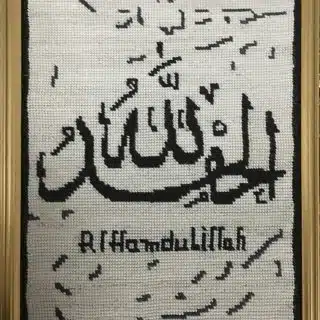 الحمد لله
AlHamduLillah